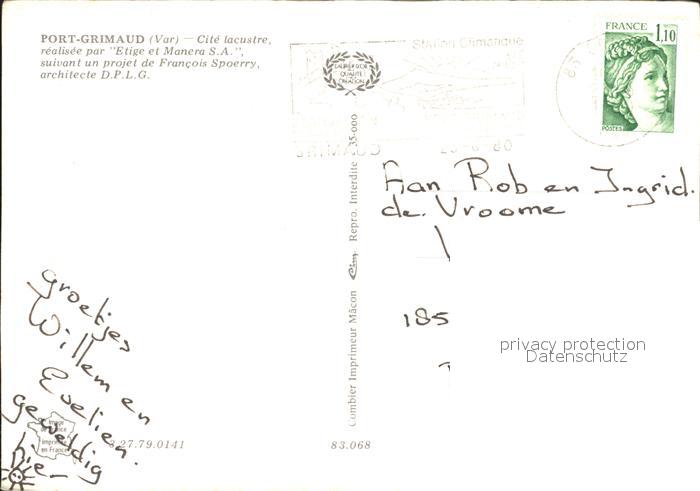 PORT-GRIMAUD (Var) — Cité lacustre,
réalisée par "Etige et Manera S.A.",
suivant un projet de François Spoerry,
architecte D.P.L.G.
Station Climatique
LAURÉAT D'OR
QUALITÉ
CRÉATION
FRANCE
1,10
POSTES
83
Aan Rob en Ingrid.
de Vroome
185
groetjes
Willem en
Evelien.
geweldig
hie-
Image
de France
imprimée
en France
Combier Imprimeur Mâcon Cim Repro. Interdite 35-000
3.27.79.0141
83.068
privacy protection
Datenschutz